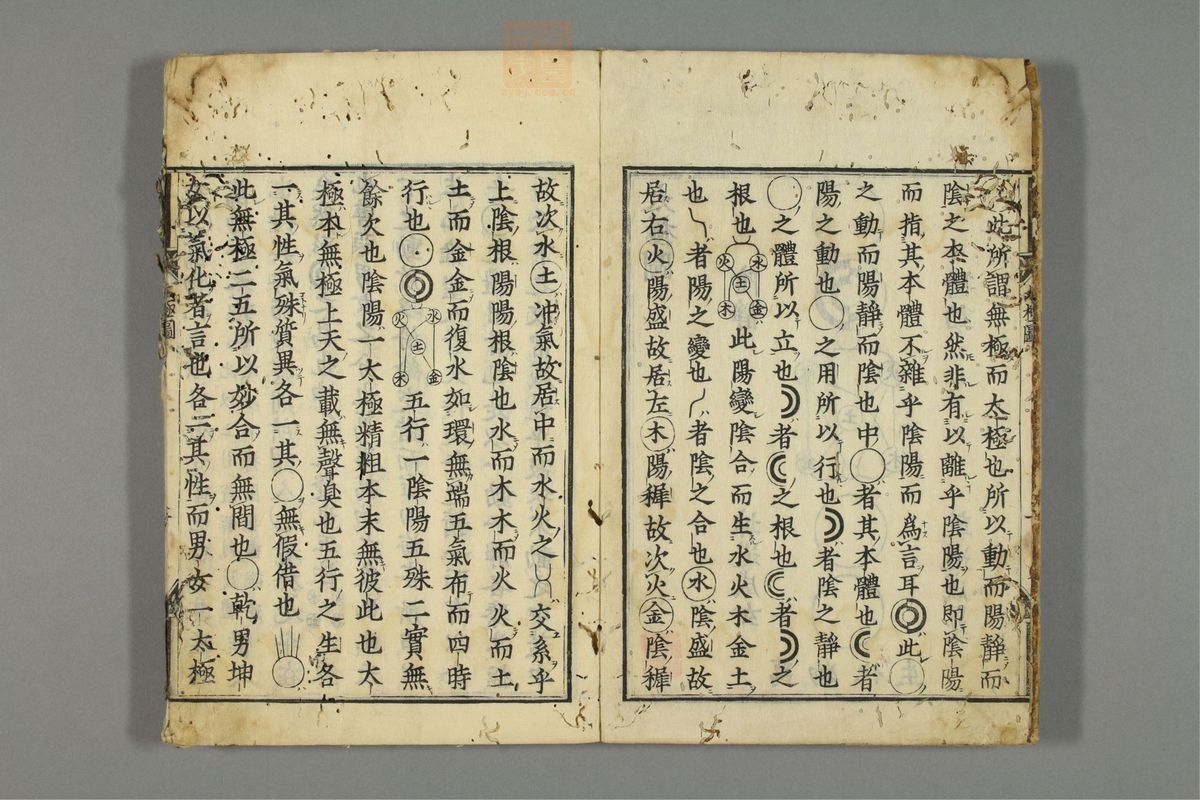 此所謂無極而太極也所以動而陽靜而
陰之本體也然非有以離乎陰陽也卽陰陽
而指其本體不雜乎陰陽而爲言耳此
之動而陽靜而陰也中○者其本體也者
陽之動也○之用所以行也者陰之靜也
○之體所以立也者之根也者之
根也火水土木金此陽變陰合而生水火木金土
也者陽之變也者陰之合也水陰盛故
居右火陽盛故居左木陽穉故次火金陰穉
故次水土沖氣故居中而水火之交系乎
上陰根陽陽根陰也水而木木而火火而土
土而金金而復水如環無端五氣布而四時
行也火水土木金五行一陰陽五殊二實無
餘欠也陰陽一太極精粗本末無彼此也太
極本無極上天之載無聲臭也五行之生各
一其性氣殊質異各一其○無假借也
此無極二五所以妙合而無間也○乾男坤
女以氣化者言也各一其性而男女一太極
極圖